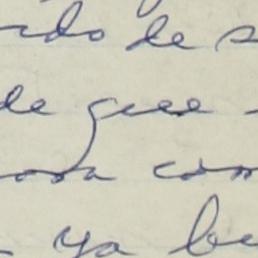 rdo de s
de que
osa com
ya bu